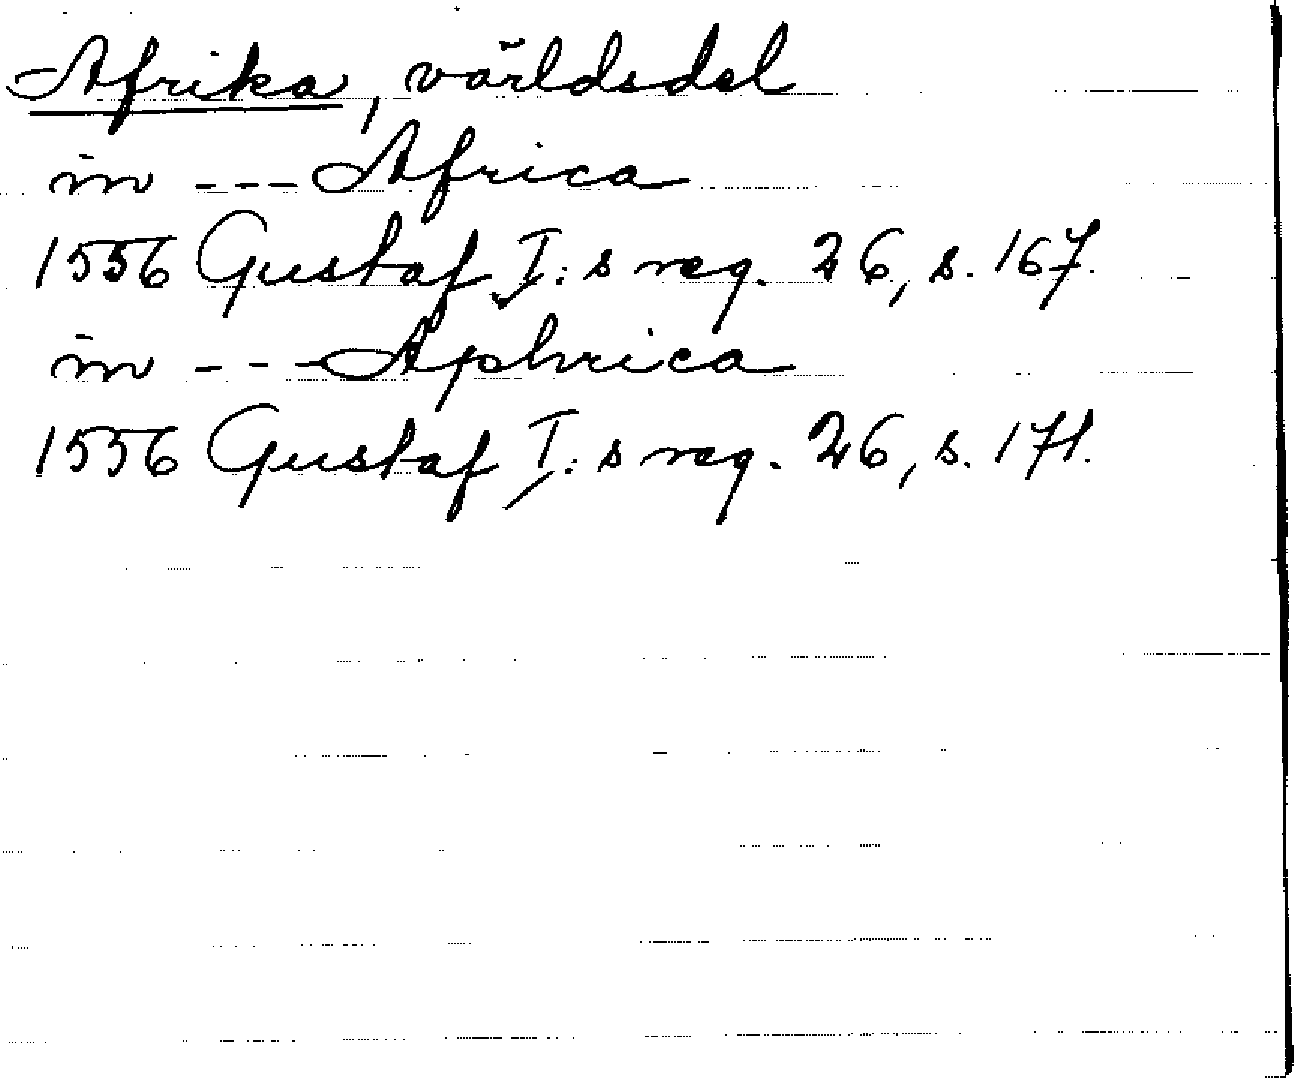 Afrika, världsdel
in --- Africa
1556 Gustaf I:s reg. 26, s. 167.
in --- Aphrica
1556 Gustaf I:s reg. 26, s. 171.